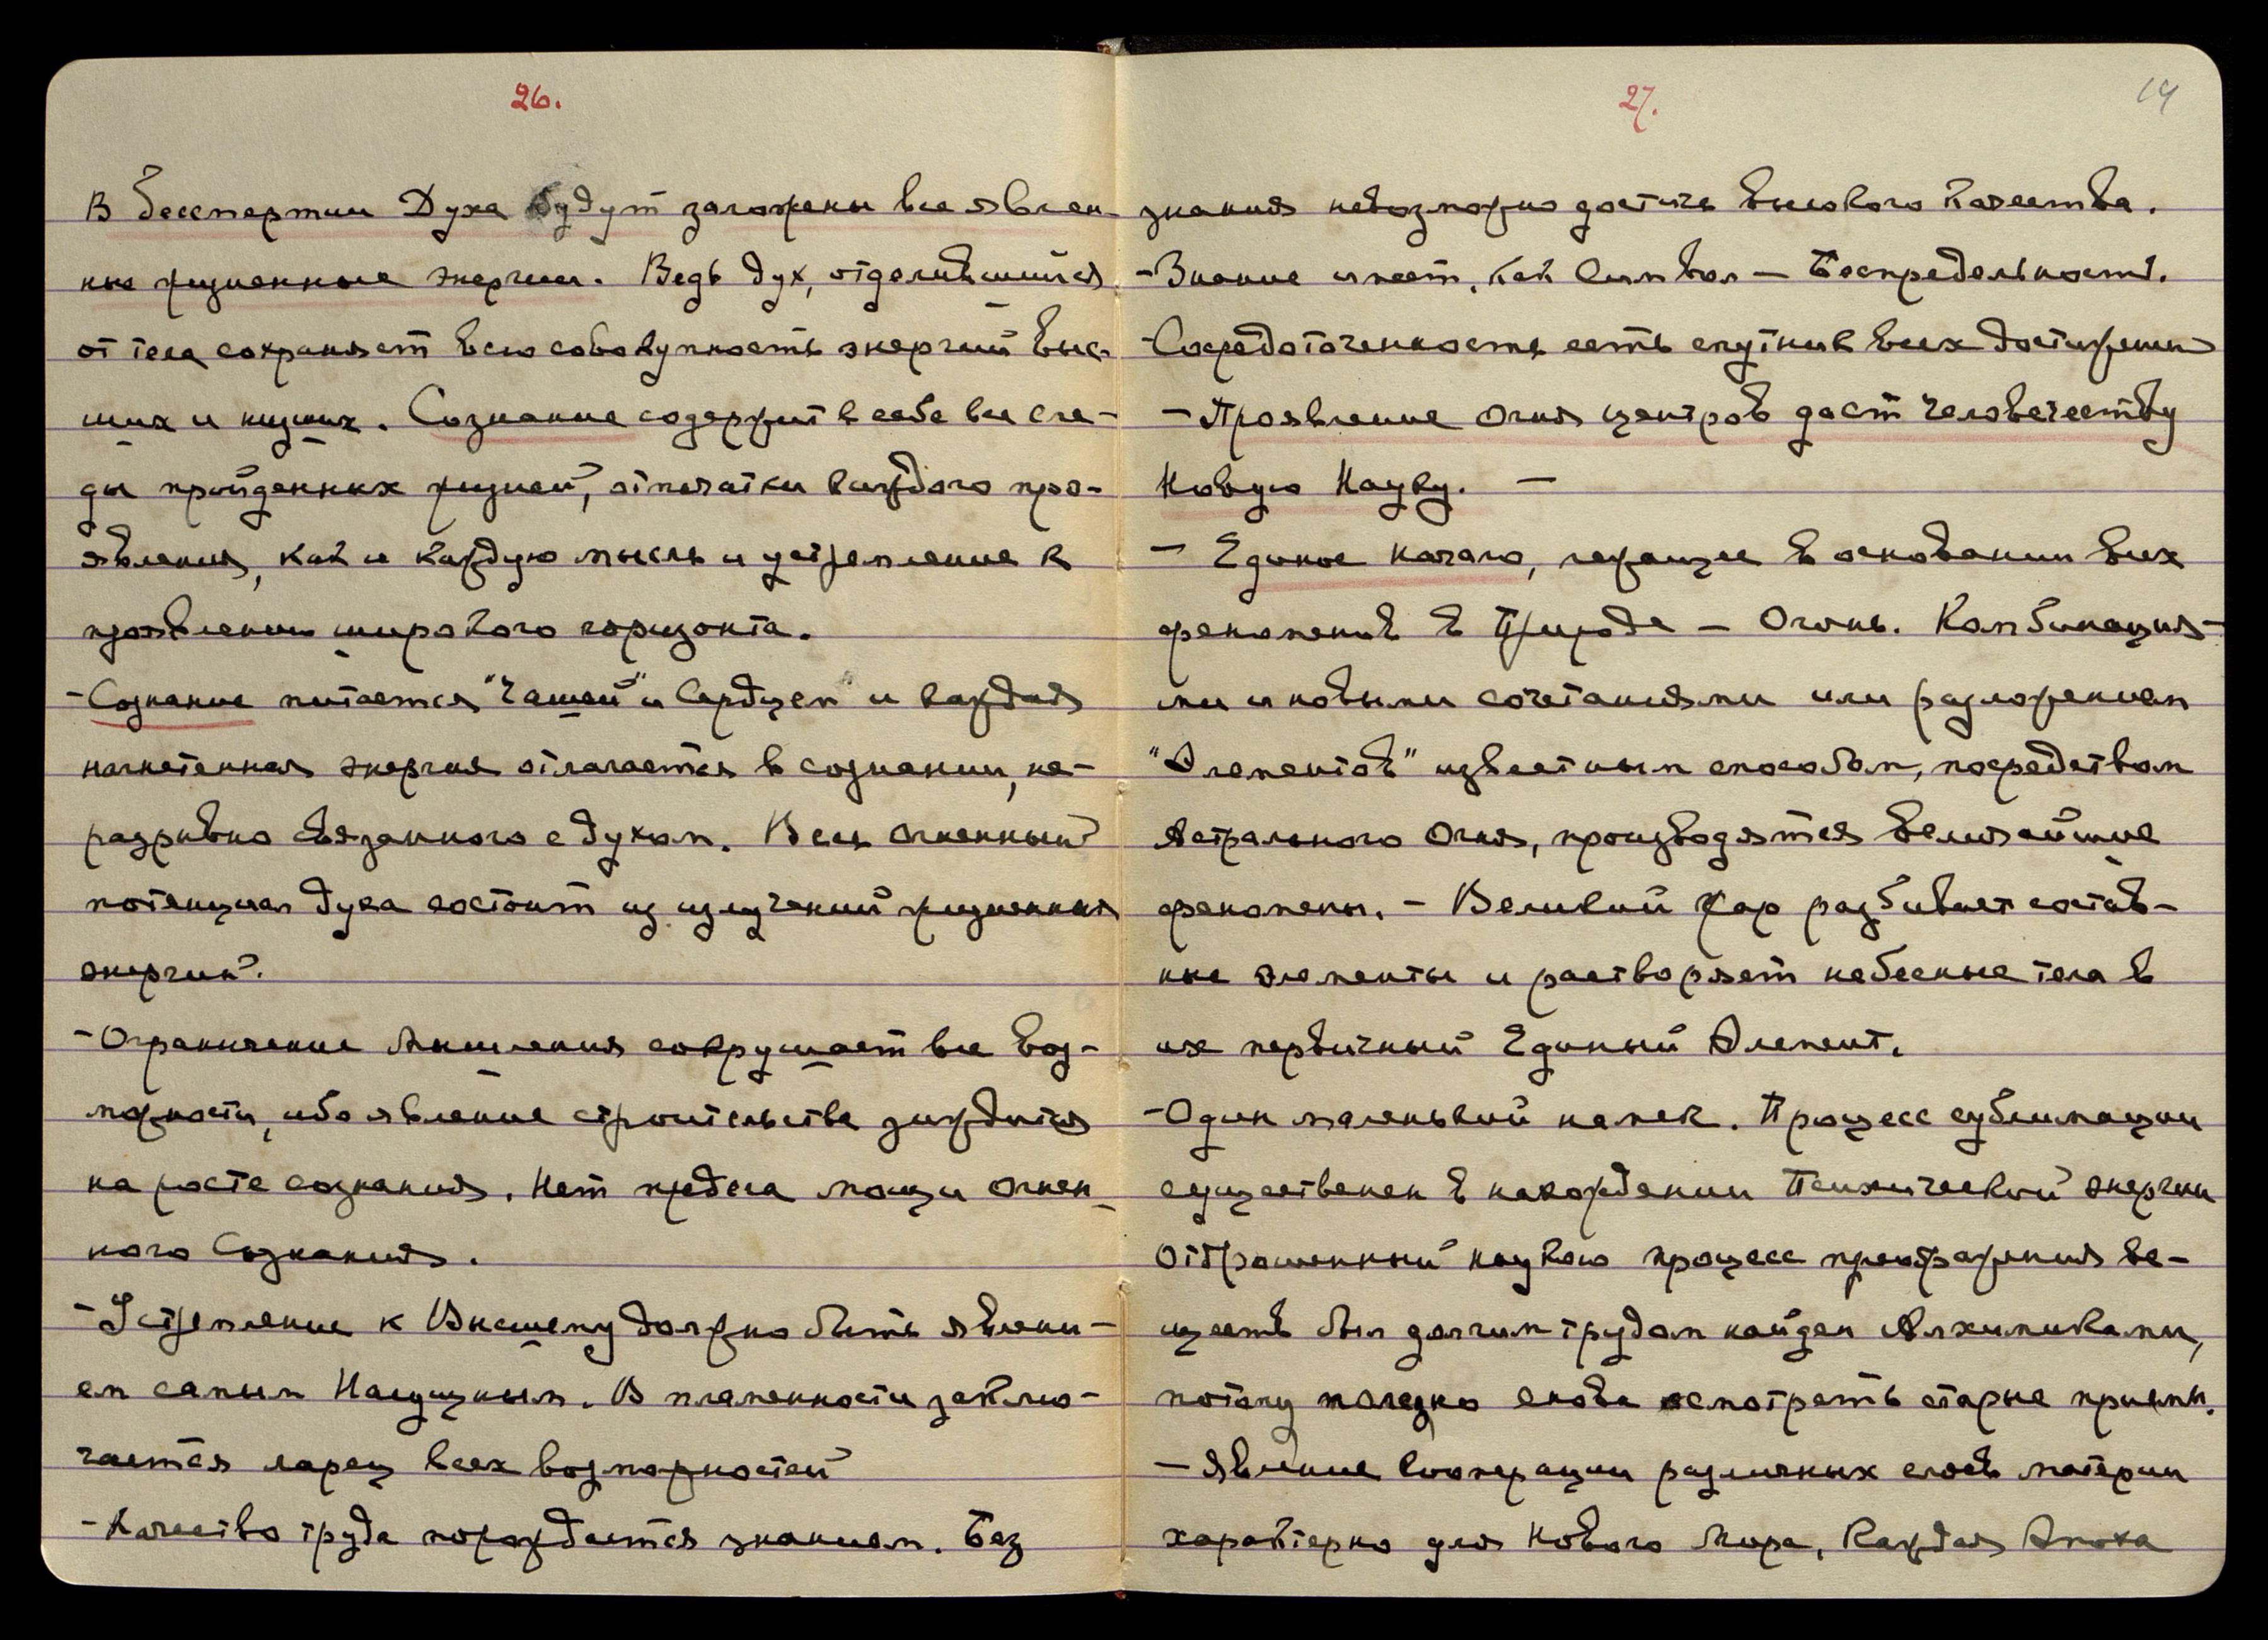 26.
В бессмертии Духа будут заложены все явлен-
ные жизненные энергии. Ведь дух, отделившийся
от тела сохраняет всю совокупность энергий выс-
ших и низших. Сознание содержит в себе все сле-
ды пройденных жизней, отпечатки каждого про-
явления, как и каждую мысль и устремление к
проявлению широкого горизонта.
-Сознание питается "Чашей" и Сердцем" и каждая
нагнетенная энергия отлагается в сознании, не-
разрывно связанного с духом. Весь огненный
потенциал духа состоит из излучений жизненных
энергий.
-Ограничение мышления сокрушает все воз-
можности, ибо явление строительства зиждется
на росте сознания. Нет предела мощи огнен-
ного Сознания.
-Устремление к Высшему должно быть явлени-
ем самым Насущным. В пламенности заклю-
чается ларец всех возможностей
-Качество труда порождается знанием. Без
27.
19
знания невозможно достичь высокого качества.
-Знание имеет, как символ — Беспредельность.
-Сосредоточенность есть спутник всех достижений
-Проявление огня центров даст человечеству
Новую Науку. —
- Единое начало, лежащее в основании всех
феноменов в Природе — Огонь. Комбинация-
ми и новыми сочетаниями или разложением
"Элементов" известным способом, посредством
Астрального Огня, производятся величайшие
феномены. - Великий Жар разбивает состав-
ные элементы и растворяет небесные тела в
их первичный Единый Элемент.
-Один маленький намек. Процесс сублимации
существенен в нахождении Психической энергии
Отброшенный наукою процесс преображения ве-
ществ был долгим трудом найден Алхимиками,
потому полезно снова осмотреть старые приемы.
- Явление кооперации различных слоев материи
характерно для Нового Мира, Каждая Эпоха